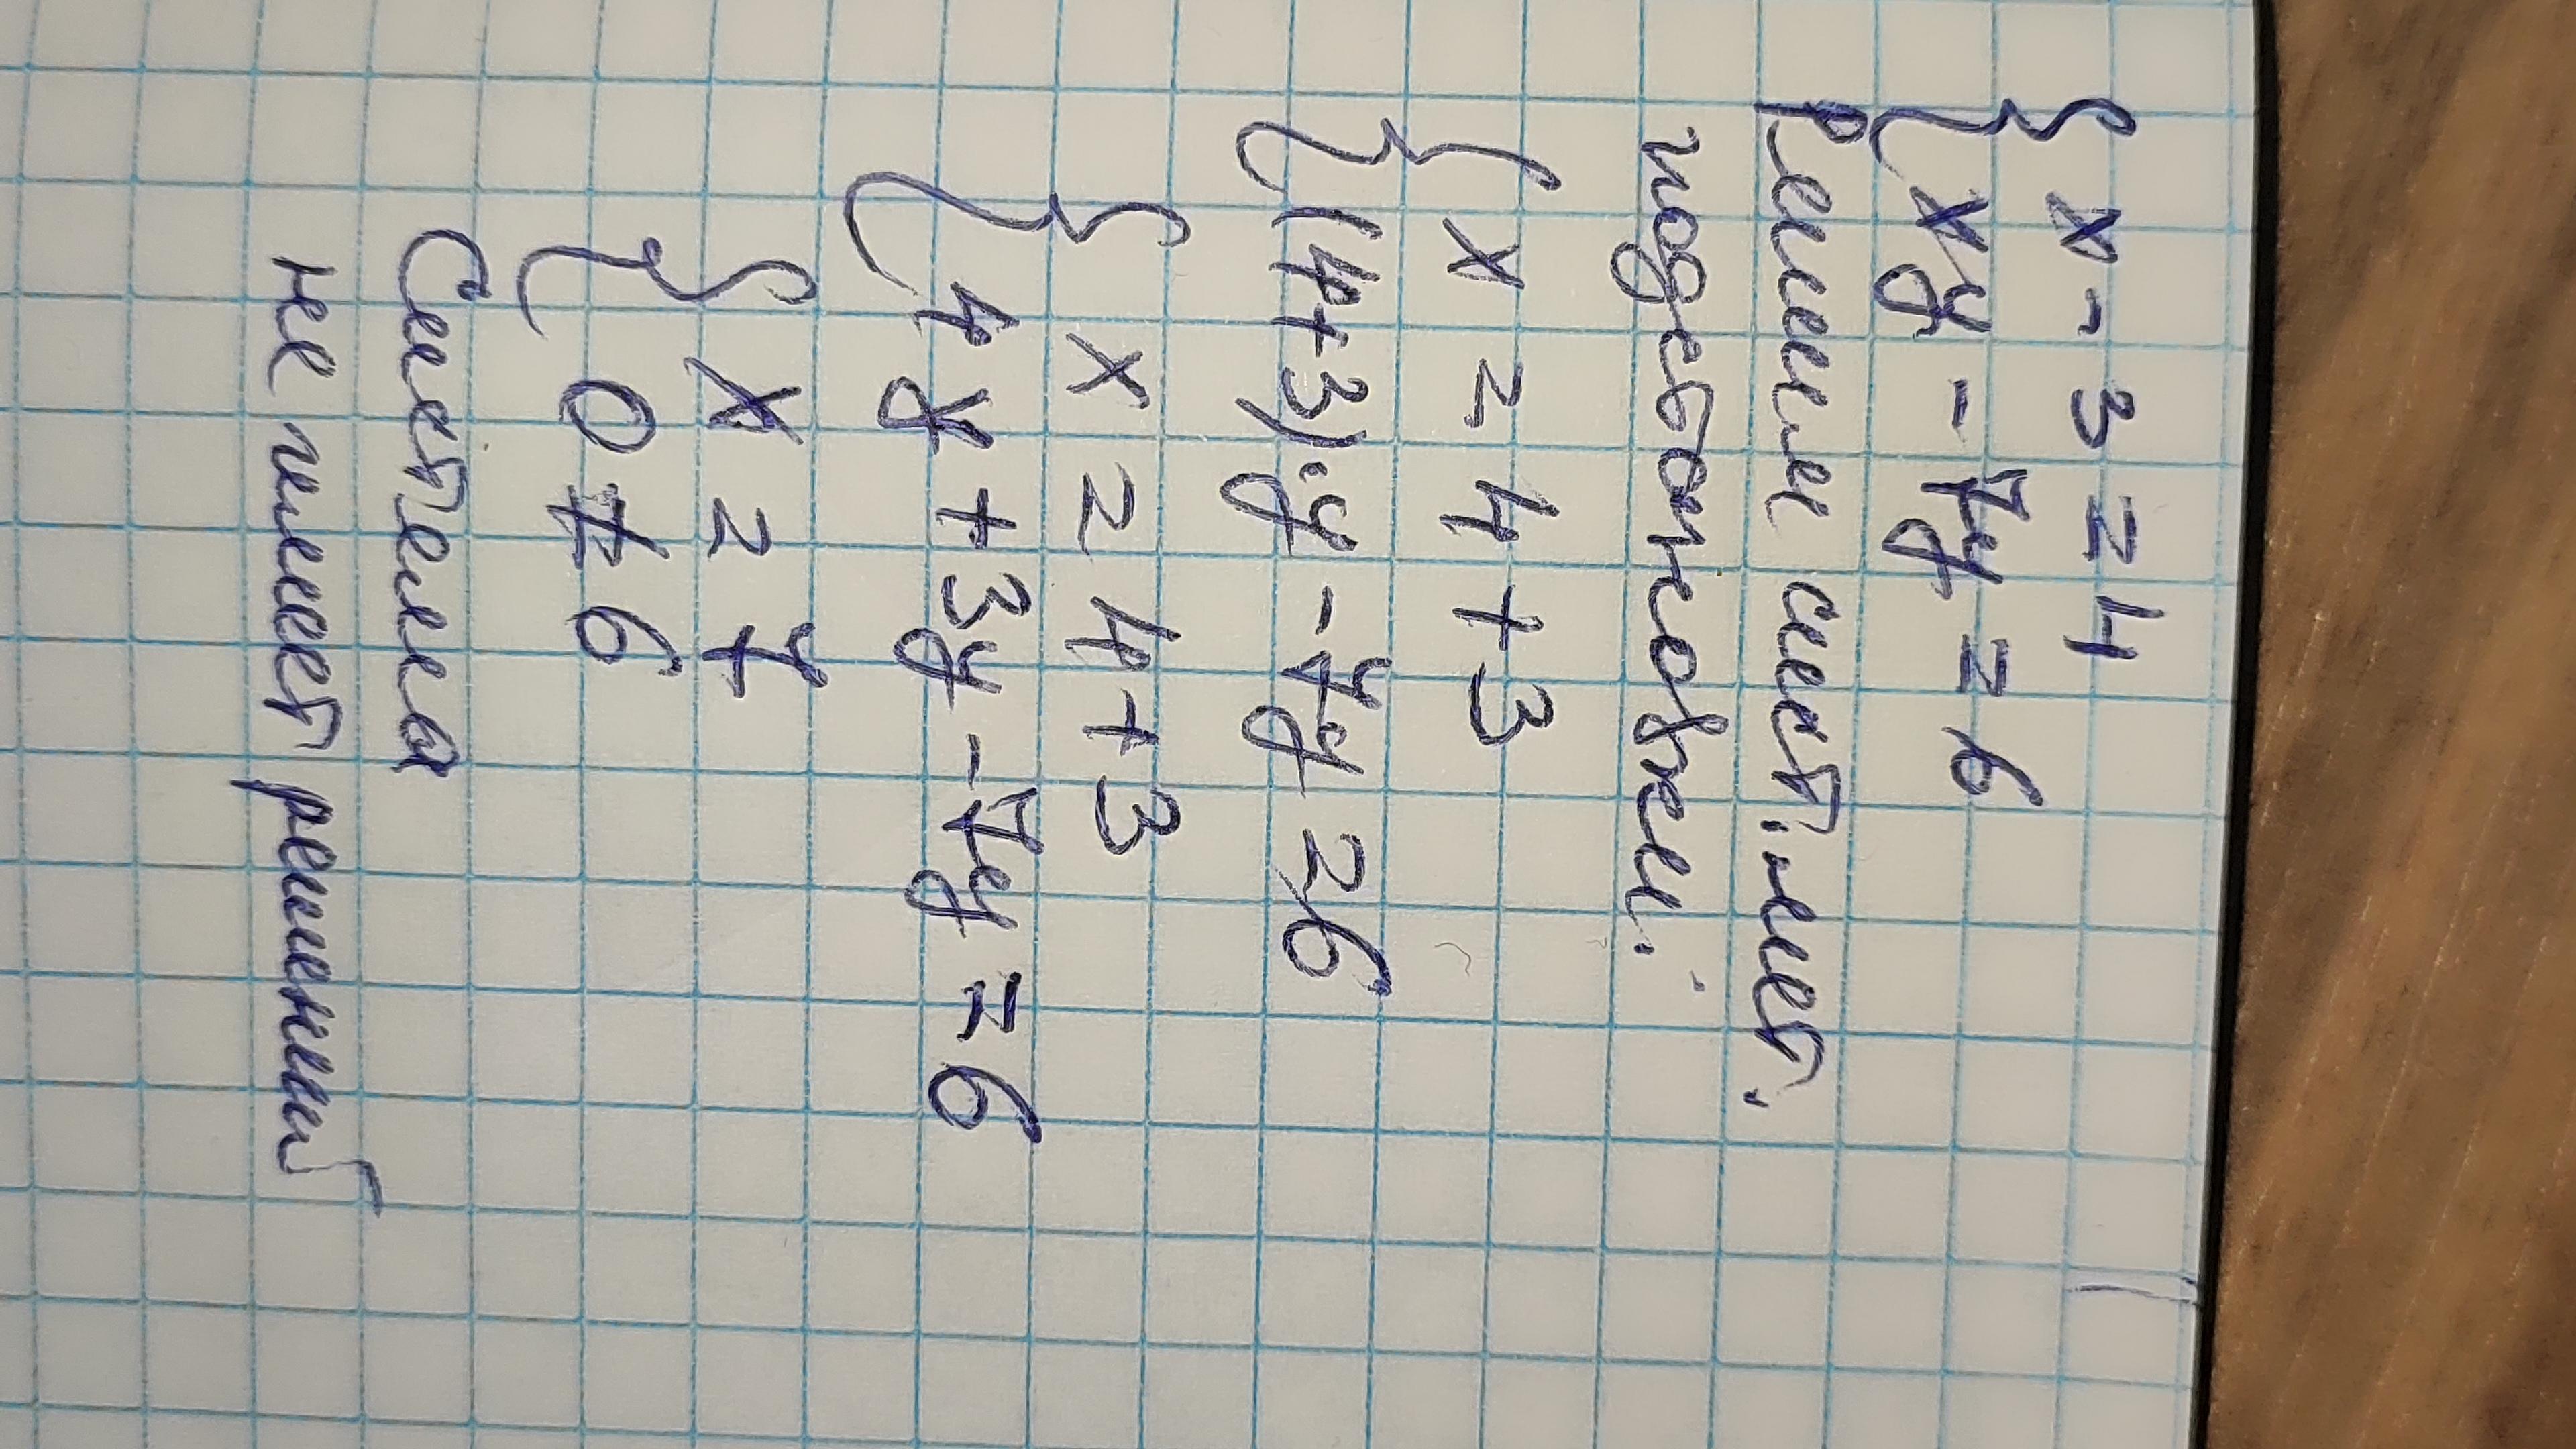 { x - 3 = 4
{ xy - 7y = 6
Решение сист. мет.
подстановки.
{ x = 4 + 3
{ (4+3)·y - 7y = 6
{ x = 4 + 3
{ 4y + 3y - 7y = 6
{ x = 7
{ 0 ≠ 6
Система
не имеет решений